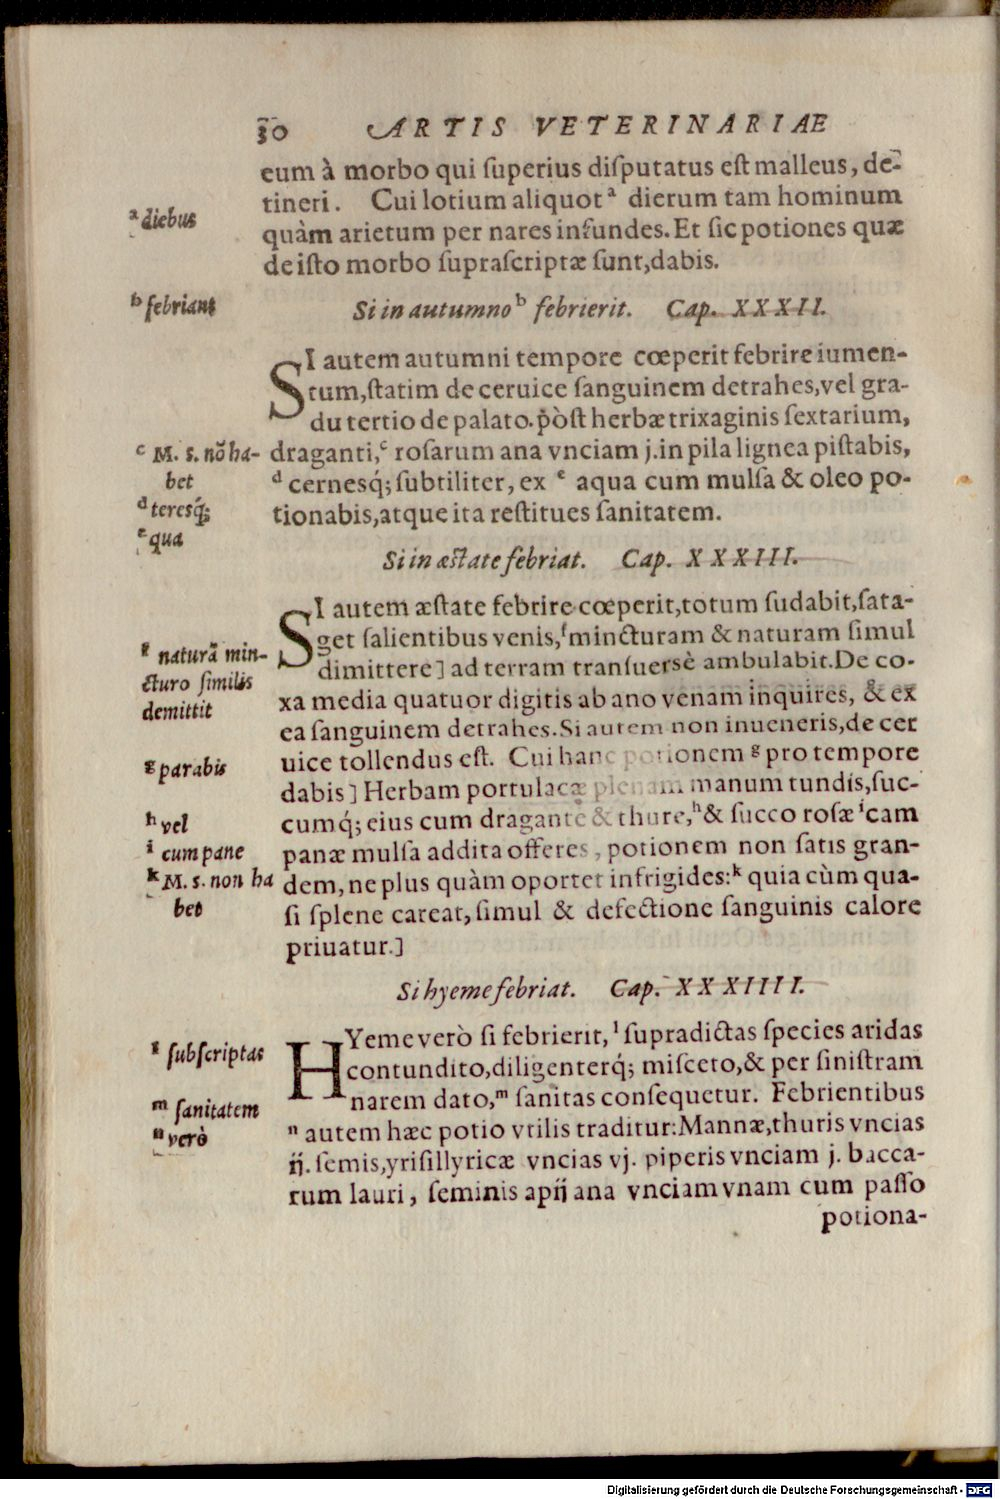 30 ARTIS VETERINARIAE
eum à morbo qui ſuperius diſputatus eſt malleus, de-
tineri. Cui lotium aliquot ᵃ dierum tam hominum
quàm arietum per nares infundes. Et ſic potiones quæ
de iſto morbo ſupraſcriptæ ſunt, dabis.
ᵃ diebus
Si in autumno ᵇ febrierit. Cap. XXXII.
ᵇ febriant
SI autem autumni tempore cœperit febrire iumen-
tum, ſtatim de ceruice ſanguinem detrahes, vel gra-
du tertio de palato. pòſt herbæ trixaginis ſextarium,
draganti, ᶜ roſarum ana vnciam j. in pila lignea piſtabis,
ᵈ cernesq́; ſubtiliter, ex ᵉ aqua cum mulſa & oleo po-
tionabis, atque ita reſtitues ſanitatem.
ᶜ M. s. nõ ha-
bet
ᵈ teresq́;
ᵉ qua
Si in æſtate febriat. Cap. XXXIII.
SI autem æſtate febrire cœperit, totum ſudabit, ſata-
get ſalientibus venis, ᶠ mincturam & naturam ſimul
dimittere] ad terram tranſuersè ambulabit. De co-
xa media quatuor digitis ab ano venam inquires, & ex
ea ſanguinem detrahes. Si autem non inueneris, de cer
uice tollendus eſt. Cui hanc potionem ᵍ pro tempore
dabis] Herbam portulacæ plenam manum tundis, ſuc-
cumq́; eius cum dragante & thure, ʰ & ſucco roſæ ⁱ cam
panæ mulſa addita offeres, potionem non ſatis gran-
dem, ne plus quàm oportet infrigides: ᵏ quia cùm qua-
ſi ſplene careat, ſimul & defectione ſanguinis calore
priuatur.]
ᶠ naturã min-
cturo ſimilis
demittit
ᵍ parabis
ʰ vel
ⁱ cum pane
ᵏ M. s. non ha
bet
Si hyeme febriat. Cap. XXXIIII.
HYeme verò ſi febrierit, ˡ ſupradictas ſpecies aridas
contundito, diligenterq́; miſceto, & per ſiniſtram
narem dato, ᵐ ſanitas conſequetur. Febrientibus
ⁿ autem hæc potio vtilis traditur: Mannæ, thuris vncias
ij. ſemis, yris illyricæ vncias vj. piperis vnciam j. bacca-
rum lauri, ſeminis apij ana vnciam vnam cum paſſo
ˡ ſubſcriptas
ᵐ ſanitatem
ⁿ verò
potiona-
Digitalisierung gefördert durch die Deutsche Forschungsgemeinschaft - DFG